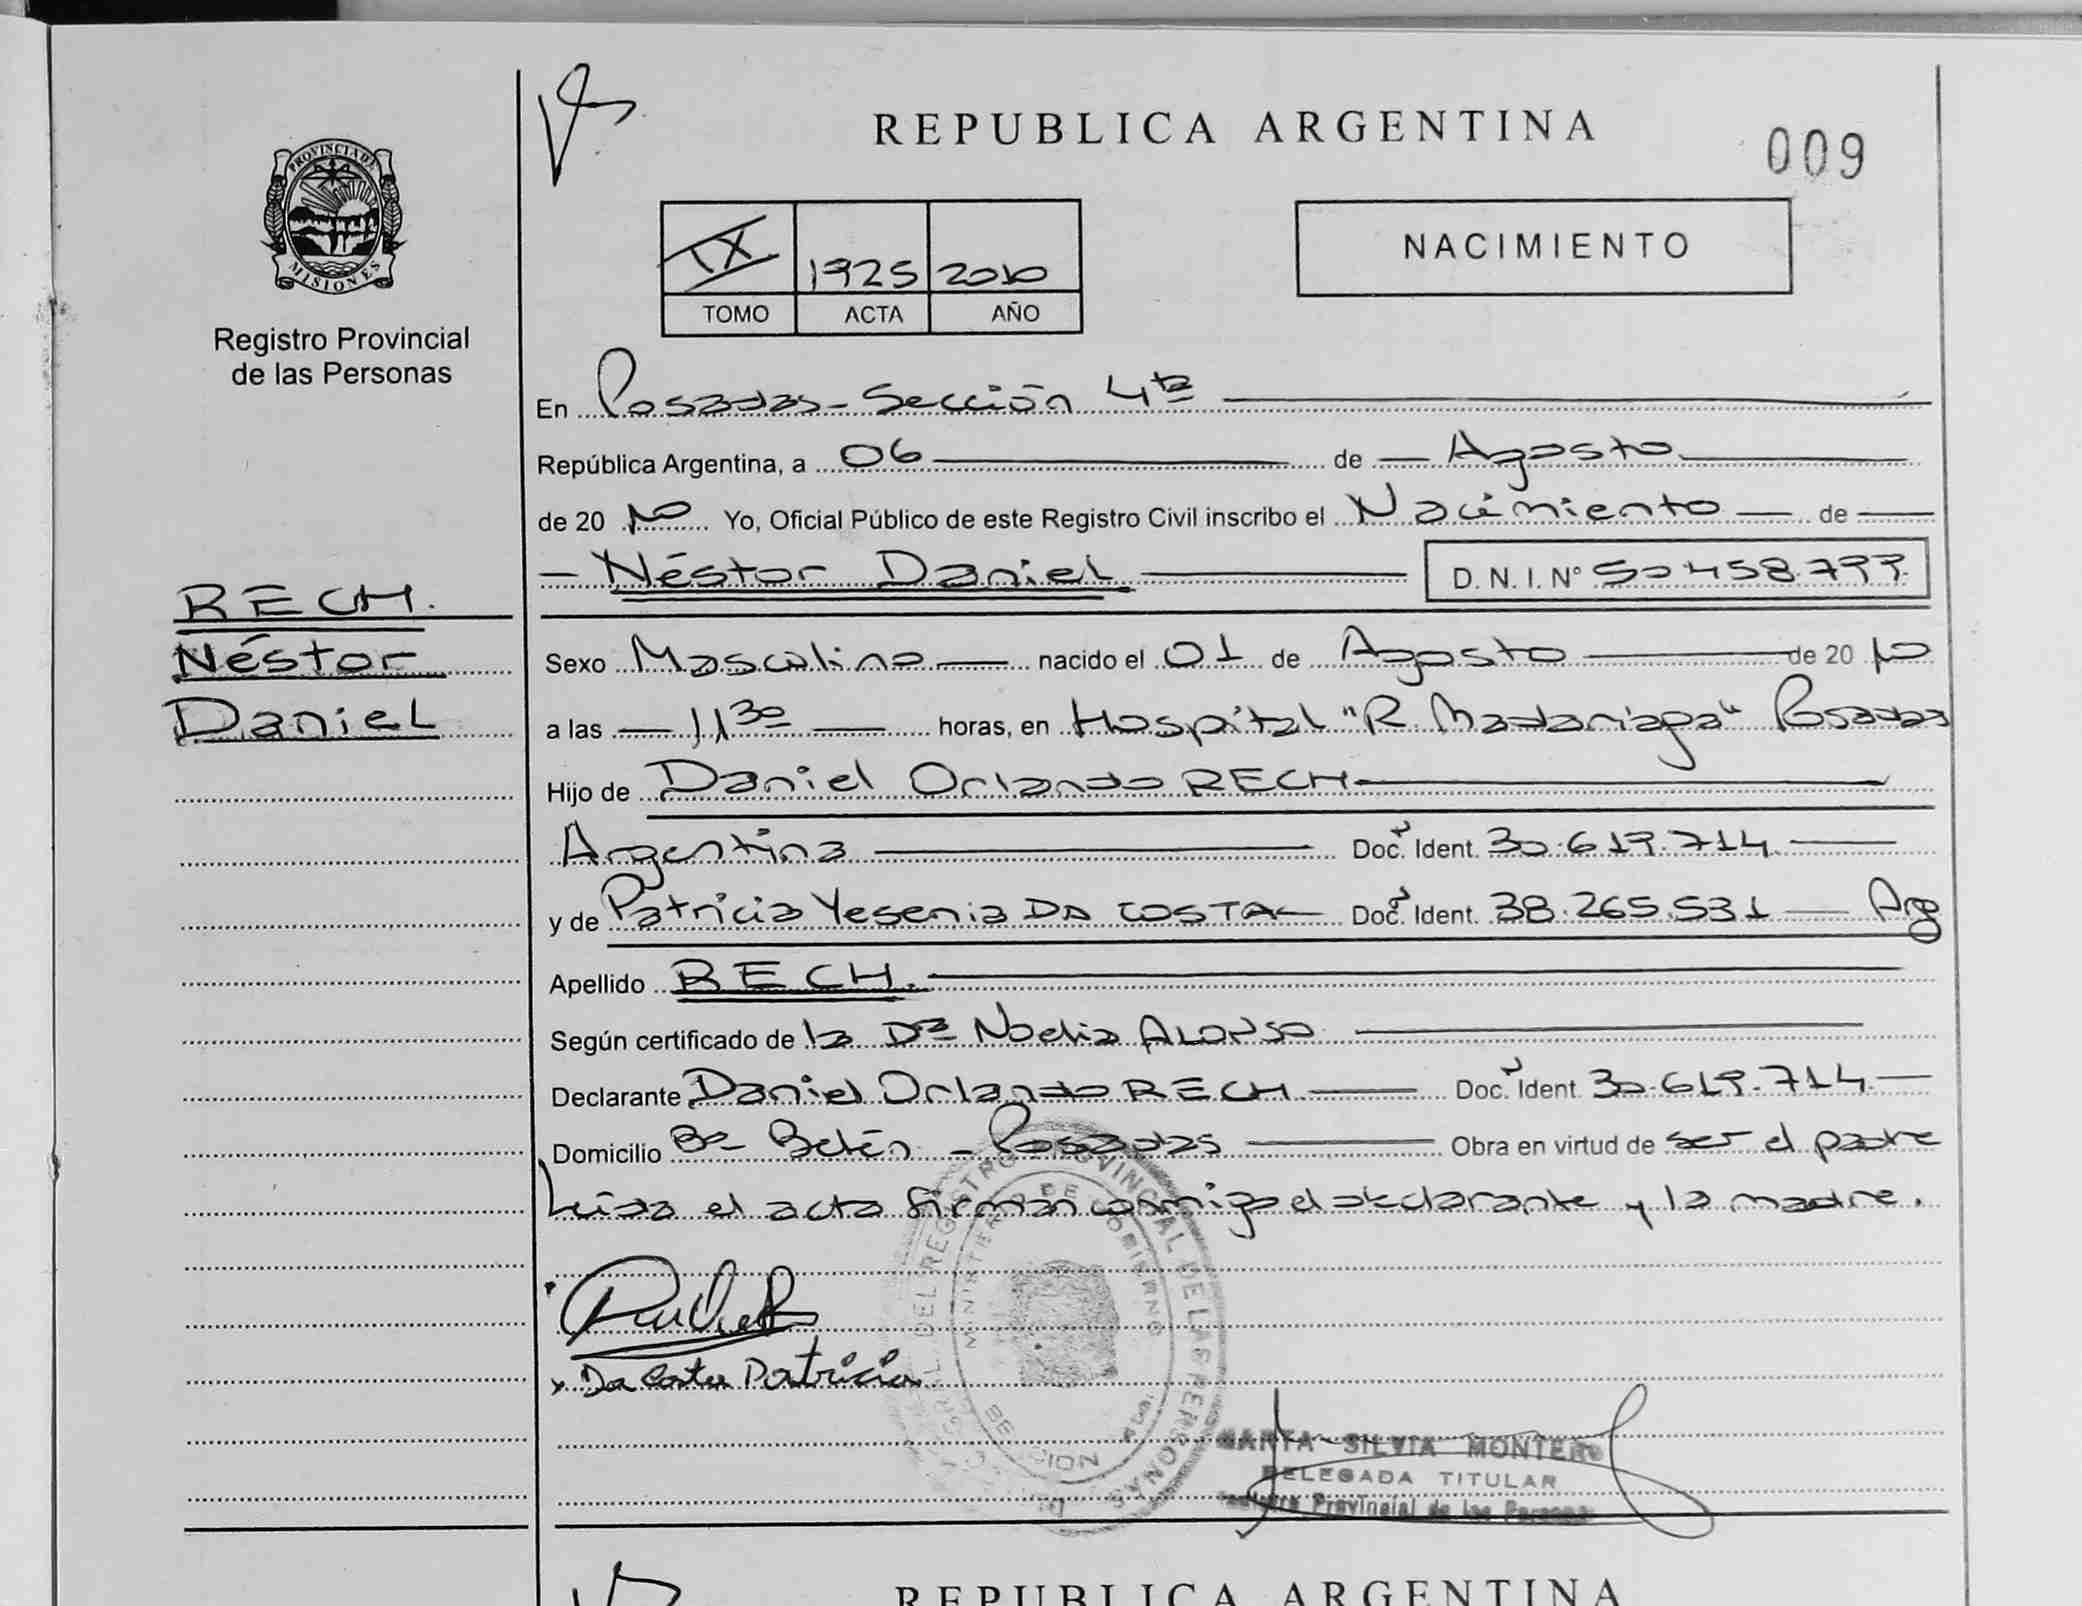 REPUBLICA ARGENTINA
009
PROVINCIA DE
MISIONES
Registro Provincial
de las Personas
IX 1925 2010
TOMO ACTA AÑO
NACIMIENTO
En Posadas - Sección 4ta
República Argentina, a 06 de Agosto
de 2010 Yo, Oficial Público de este Registro Civil inscribo el Nacimiento de
Néstor Daniel D. N. I. Nº 50.458.799
RECH.
Néstor
Daniel
Sexo Masculino nacido el 01 de Agosto de 2010
a las 11 30 horas, en Hospital "R. Madariaga" Posadas
Hijo de Daniel Orlando RECH
Argentina Doc. Ident. 30.619.714
y de Patricia Yesenia DA COSTA Doc. Ident. 38.265.531 Arg
Apellido RECH.
Según certificado de la Dra Noelia ALONSO
Declarante Daniel Orlando RECH Doc. Ident. 30.619.714
Domicilio Bo Belén - Posadas Obra en virtud de ser el padre
Leída el acta firman conmigo el declarante y la madre.
Da Costa Patricia
DEL REGISTRO PROVINCIAL DE LAS PERSONAS
MINISTERIO DE GOBIERNO
MARTA SILVIA MONTERO
DELEGADA TITULAR
Registro Provincial de las Personas
REPUBLICA ARGENTINA